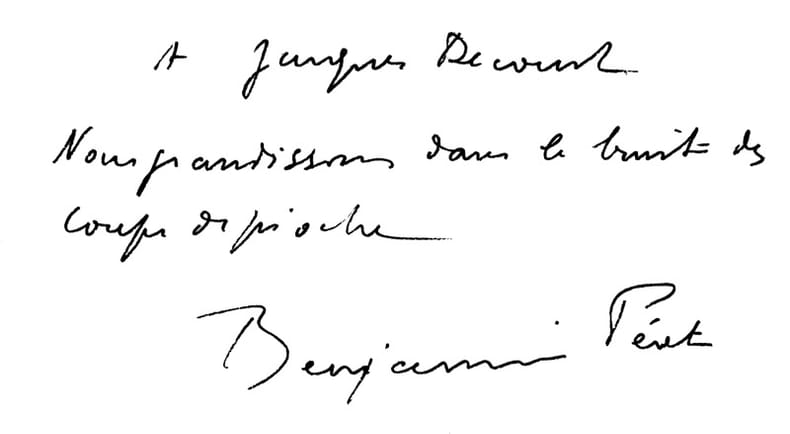 A Jacques Decourt
Nous grandissons dans le bruit des
coups de pioche
Benjamin Péret